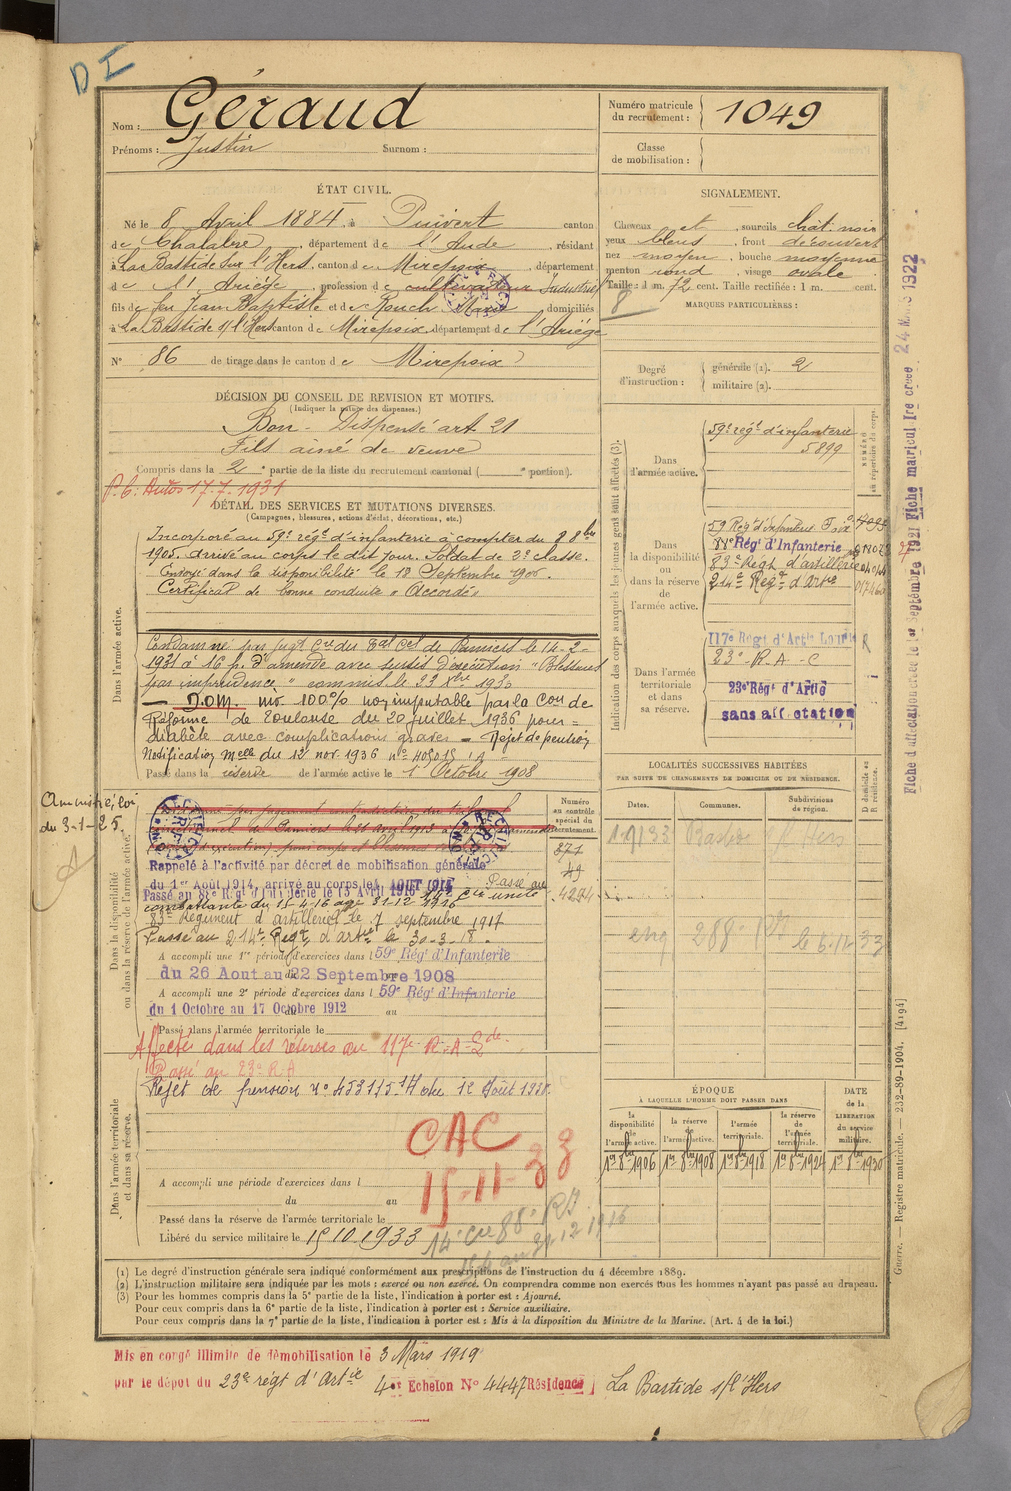 D I
Nom : Géraud
Prénoms : Justin Surnom :
Numéro matricule du recrutement : 1049
Classe de mobilisation :
ÉTAT CIVIL.
Né le 8 Avril 1884, à Puivert canton
de Chalabre, département de l'Aude, résidant
à La Bastide sur l'Hers, canton de Mirepoix, département
de l'Ariège, profession de cultivateur Industriel
fils de feu Jean Baptiste et de Rouch Marie domiciliés
à La Bastide s/ l'Hers canton de Mirepoix, département de l'Ariège
N° 86 de tirage dans le canton de Mirepoix
SIGNALEMENT.
Cheveux et, sourcils chât. noir
yeux bleus, front découvert
nez moyen, bouche moyenne
menton rond, visage ovale
Taille : 1 m. 72 cent. Taille rectifiée : 1 m. cent.
8
MARQUES PARTICULIÈRES :
Degré d'instruction : générale (1). 2
militaire (2).
DÉCISION DU CONSEIL DE REVISION ET MOTIFS.
(Indiquer la nature des dispenses.)
Bon - Dispensé art 21
Fils aîné de veuve
Compris dans la 2e partie de la liste du recrutement cantonal ( e portion).
P.C. Autos 17.7.1931
DÉTAIL DES SERVICES ET MUTATIONS DIVERSES.
(Campagnes, blessures, actions d'éclat, décorations, etc.)
Dans l'armée active.
Incorporé au 59e régt d'infanterie à compter du 8 8bre
1905. arrivé au corps le dit jour. Soldat de 2e classe.
Envoyé dans la disponibilité le 18 Septembre 1906.
Certificat de bonne conduite "Accordé"
Condamné par jugt du de Pamiers le 14-2-
1931 à 16 f. d'amende avec sursis d'exécution "Blessures
par imprudence" commis le 23 Xbre 1930
D.O.M. inv. 100% non imputable par la Con de
Réforme de Toulouse du 20 juillet 1936 pour =
diabète avec complications graves - Rejet de pension
Notification Melle du 12 nov. 1936 n°
Passé dans la réserve de l'armée active le 1er Octobre 1908
Amnistié, loi
du 3-1-25.
Dans la disponibilité ou dans la réserve de l'armée active.
RECTIFICATION
Numéro au contrôle spécial du recrutement.
371
49
4294
Rappelé à l'activité par décret de mobilisation générale
du 1er Août 1914, arrivé au corps le 4 AOUT 1914 Passé au
Passé au 88e R.gt d'Infanterie le 15 Avril 1916 14e Cie unité
combattante du 15-4-16 au 31-12 1916
83e Régiment d'artillerie le 7 septembre 1917
Passé au 214e Régt d'artie le 30-3-18.
A accompli une 1re période d'exercices dans l 59e Régt d'Infanterie
du 26 Aout au 22 Septembre 1908
A accompli une 2e période d'exercices dans l 59e Régt d'Infanterie
du 1 Octobre au 17 Octobre 1912
Passé dans l'armée territoriale le
Affecté dans les réserves au 117e R.A.Lde.
Passé au 23e R.A
Dans l'armée territoriale et dans sa réserve.
Rejet de pension N° 453115 du 12 Août 1938.
CAC
15-11-33
A accompli une période d'exercices dans l
du au
Passé dans la réserve de l'armée territoriale le
Libéré du service militaire le 15 10 1933
14e Cie 88e RI
15.4 au 31 12 1916
Indication des corps auxquels les jeunes gens sont affectés (3).
NUMÉRO au répertoire du corps.
Dans l'armée active.
59e régt d'infanterie
5899
Dans la disponibilité ou dans la réserve de l'armée active.
59 Régt d'infanterie Foix
88e Régt d'Infanterie
83e Régt d'artillerie
214e Régt d'Artie
Dans l'armée territoriale et dans sa réserve.
117e Régt d'Artie Lourde
23e R.A.C
23e Régt d'Artie
sans affectation
LOCALITÉS SUCCESSIVES HABITÉES
PAR SUITE DE CHANGEMENTS DE DOMICILE OU DE RÉSIDENCE.
Dates. Communes. Subdivisions de région. D domicile ou R résidence.
1.9.33 Bastide l'Hers
288e RI le 6.12.33
ÉPOQUE
À LAQUELLE L'HOMME DOIT PASSER DANS
la disponibilité de l'armée active. la réserve de l'armée active. l'armée territoriale. la réserve de l'armée territoriale.
DATE de la LIBÉRATION du service militaire.
1er 8bre 1906 1er 8bre 1908 1er 8bre 1918 1er 8bre 1924 1er 8bre 1930
Fiche d'affectation créée le 1er Septembre 1921 Fiche matriculaire créée 24 MARS 1922
Guerre. — Registre matricule. — 232-89-1904. [4194]
(1) Le degré d'instruction générale sera indiqué conformément aux prescriptions de l'instruction du 4 décembre 1889.
(2) L'instruction militaire sera indiquée par les mots : exercé ou non exercé. On comprendra comme non exercés tous les hommes n'ayant pas passé au drapeau.
(3) Pour les hommes compris dans la 5e partie de la liste, l'indication à porter est : Ajourné.
Pour ceux compris dans la 6e partie de la liste, l'indication à porter est : Service auxiliaire.
Pour ceux compris dans la 7e partie de la liste, l'indication à porter est : Mis à la disposition du Ministre de la Marine. (Art. 4 de la loi.)
Mis en congé illimité de démobilisation le 3 Mars 1919
par le dépôt du 23e régt d'Artie 4e Echelon N° 4447 Résidence La Bastide s/l'Hers